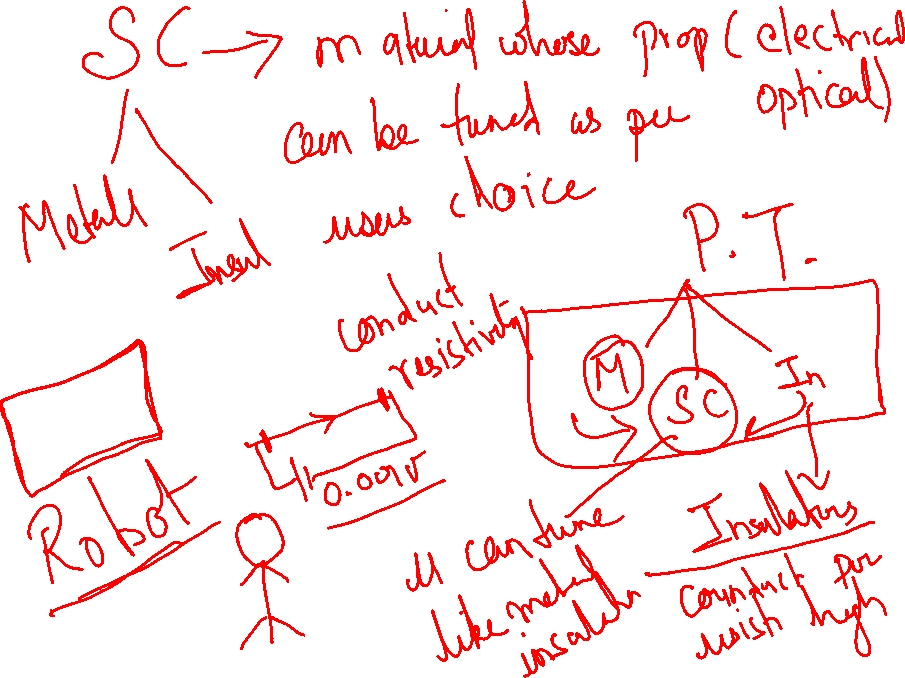 SC → material whose prop (electrical
optical)
can be tuned as per
users choice
Metals
Insul
P.T.
conduct
resistivity
M
SC
In
0.001v
Robot
U can tune
like metal
insulator
Insulators
conduct
resist high